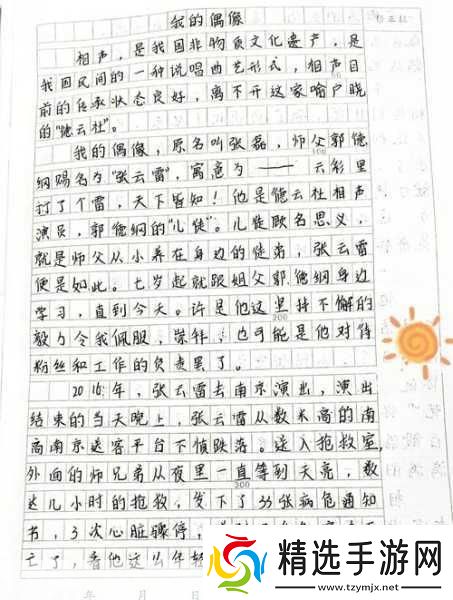 我的偶像
相声，是我国非物质文化遗产，是
我国民间的一种说唱曲艺形式，相声目
前的传承状态良好，离不开这家喻户晓
的"德云社"。
我的偶像，原名叫张磊，师父郭德
纲赐名为"张云雷"，寓意为——云彩里
打了个雷，天下皆知！他是德云社相声
演员，郭德纲的"儿徒"。儿徒顾名思义，
就是师父从小养在身边的徒弟，张云雷
便是如此。七岁起就跟姐父郭德纲身边
学习，直到今天。许是他这坚持不懈的
毅力令我佩服，崇拜，也可能是他对待
粉丝和工作的负责罢了。
200
2016年，张云雷去南京演出，演出
结束的当天晚上，张云雷从数米高的南
南京送客平台下愤跌落。送入抢救室，
外面的师兄弟从夜里一直等到天亮，数
300
达几小时的抢救，发下了33张病危通知
书，3次心脏骤停，
亡了，看他这么年轻
年 月 日
精选手游网
www.tzymjx.net